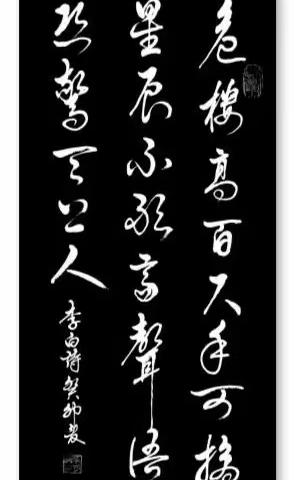 危樓高百尺手可摘
星辰不敢高聲語
恐驚天上人
李白詩癸卯夏